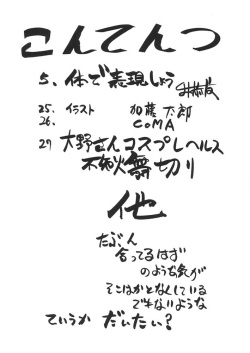 こんてんつ
5. 体で表現しよう
25. イラスト 加藤太郎
26. COMA
27 大野さんコスプレヘルス
不知火舞切り
他
たぶん
合ってるはず
のような気が
そこはかとなくしている
でもないような
ていうか だいたい?